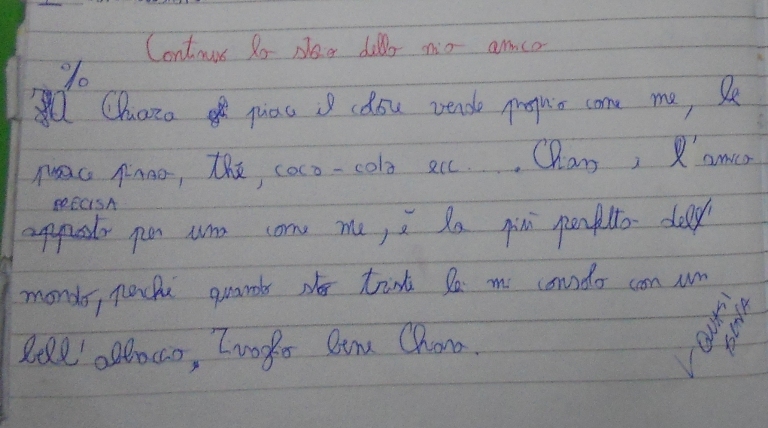 Continuo la storia della mia amica
%
A Chiara piace il colore verde proprio come me, le
piace pinno, thè, coca-cola ecc.... Chiara, è l'amica
PRECISA
apposta per una come me, è la più perfetta dell
mondo, perché quando sto triste lei mi consola con un
bell'abbaccio, Tvoglio bene Chiara.
QUASI